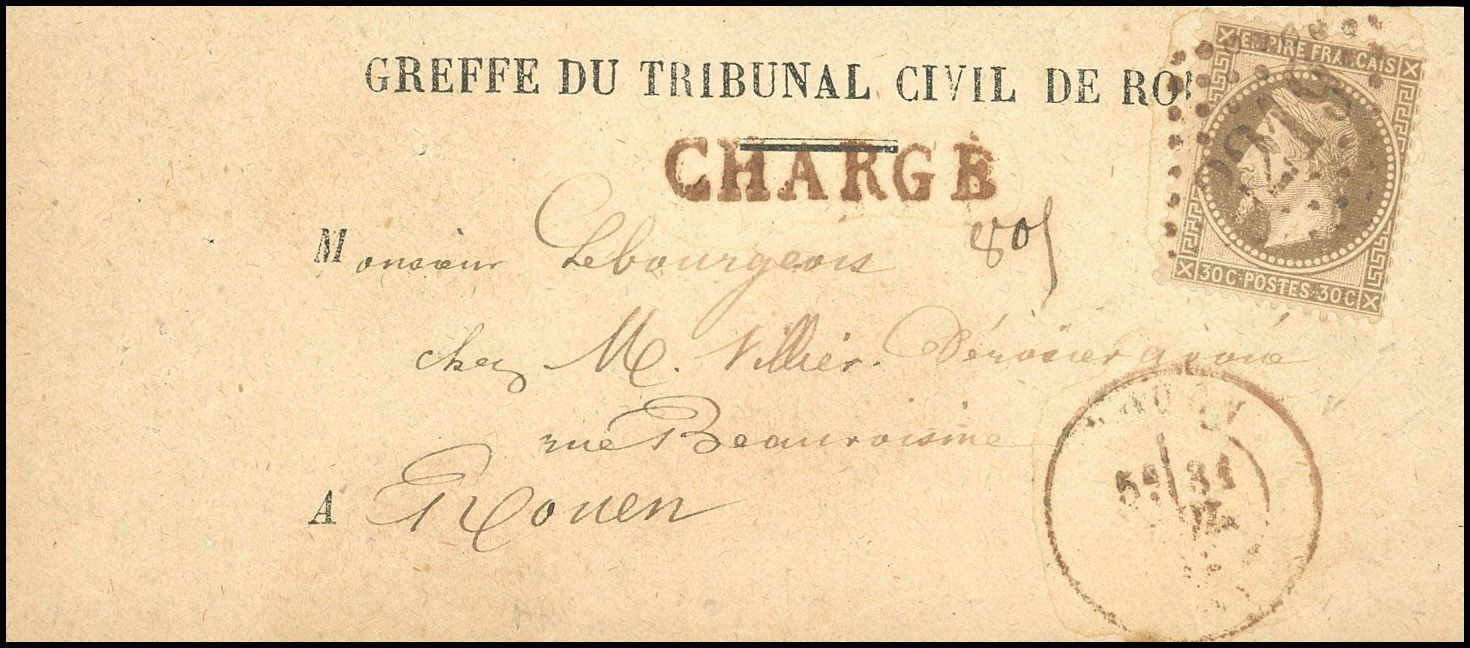 GREFFE DU TRIBUNAL CIVIL DE RO
EMPIRE FRANCAIS
CHARGÉ
30 C · POSTES · 30 C
Monsieur Lebourgeois
805
chez M. Villier. Dérosier avoué
rue Beauvoisine
A Rouen
ROUEN
5E 31